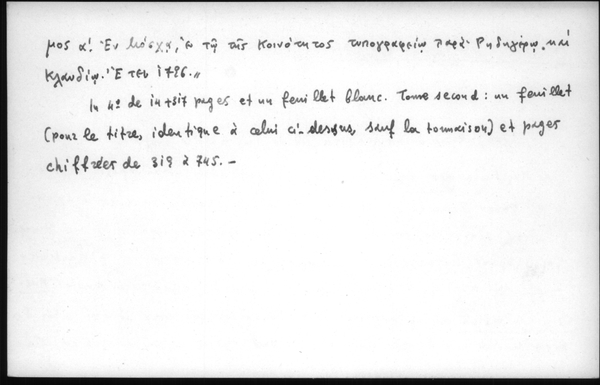 μος α'. Ἐν Μόσχᾳ, ἐν τῇ τῆς Κοινότητος τυπογραφείῳ παρὰ Ριδηγέρῳ, καὶ
Κλαυδίῳ. Ἔτει 1786.,,
In 4º de IV+317 pages et un feuillet blanc. Tome second : un feuillet
(pour le titre, identique à celui ci-dessus, sauf la tomaison) et pages
chiffrées de 319 à 745. –